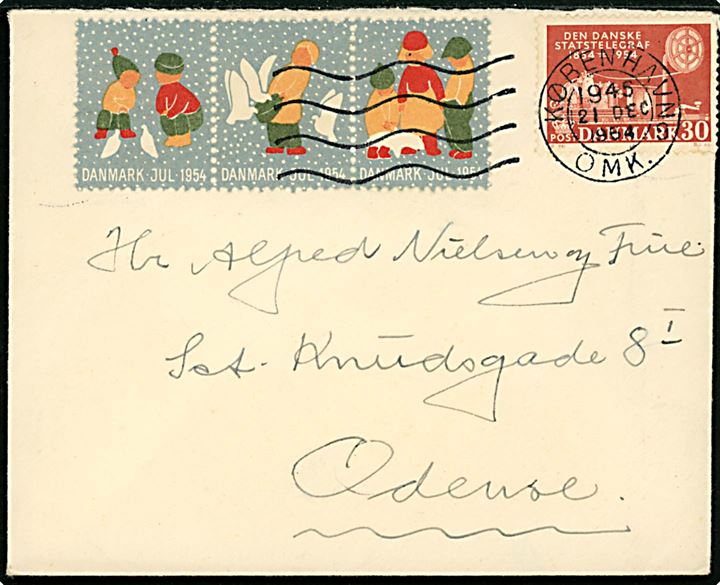 DANMARK·JUL·1954 DANMARK·JUL·1954 DANMARK·JUL·1954
DEN DANSKE
STATSTELEGRAF
1854 1954
POST DANMARK 30
KØBENHAVN
1945
21 DEC
1954
OMK.
Hr Alfred Nielsen og Frue.
Sct. Knudsgade 8 I
Odense.